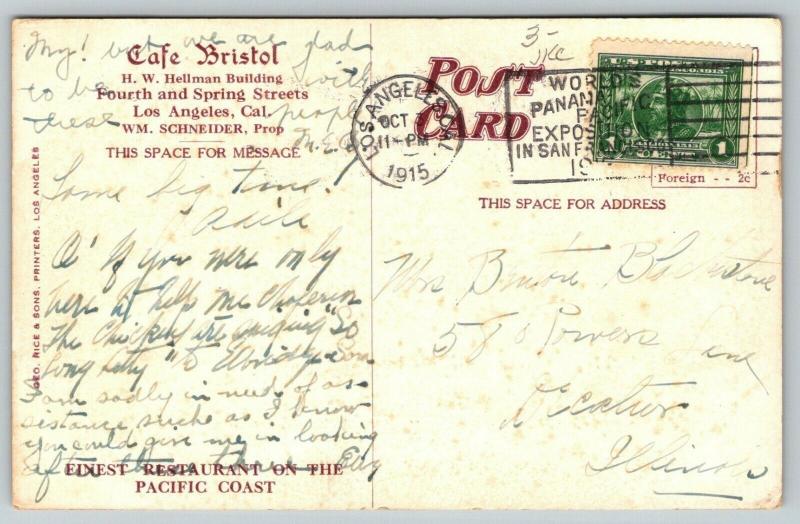 My! but we are glad
to be with
these people
M.E.
Cafe Bristol
H. W. Hellman Building
Fourth and Spring Streets
Los Angeles, Cal.
WM. SCHNEIDER, Prop
THIS SPACE FOR MESSAGE
Some big time!
O' If you were only
here to help me chaperon
The Chickens
Long
I am sadly in need of as-
sistance such as I know
you could give me in looking
after these
FINEST RESTAURANT ON THE
PACIFIC COAST
GEO. RICE & SONS, PRINTERS, LOS ANGELES
POST
CARD
3-
LOS ANGELES, CAL.
OCT
11-PM
1915
WORLD'S
PANAMA
PACIFIC
EXPOSITION
IN SAN FRANCISCO
1
Foreign -- 2c
THIS SPACE FOR ADDRESS
Mrs Blackstone
580 Powers Lane
Decatur
Illinois